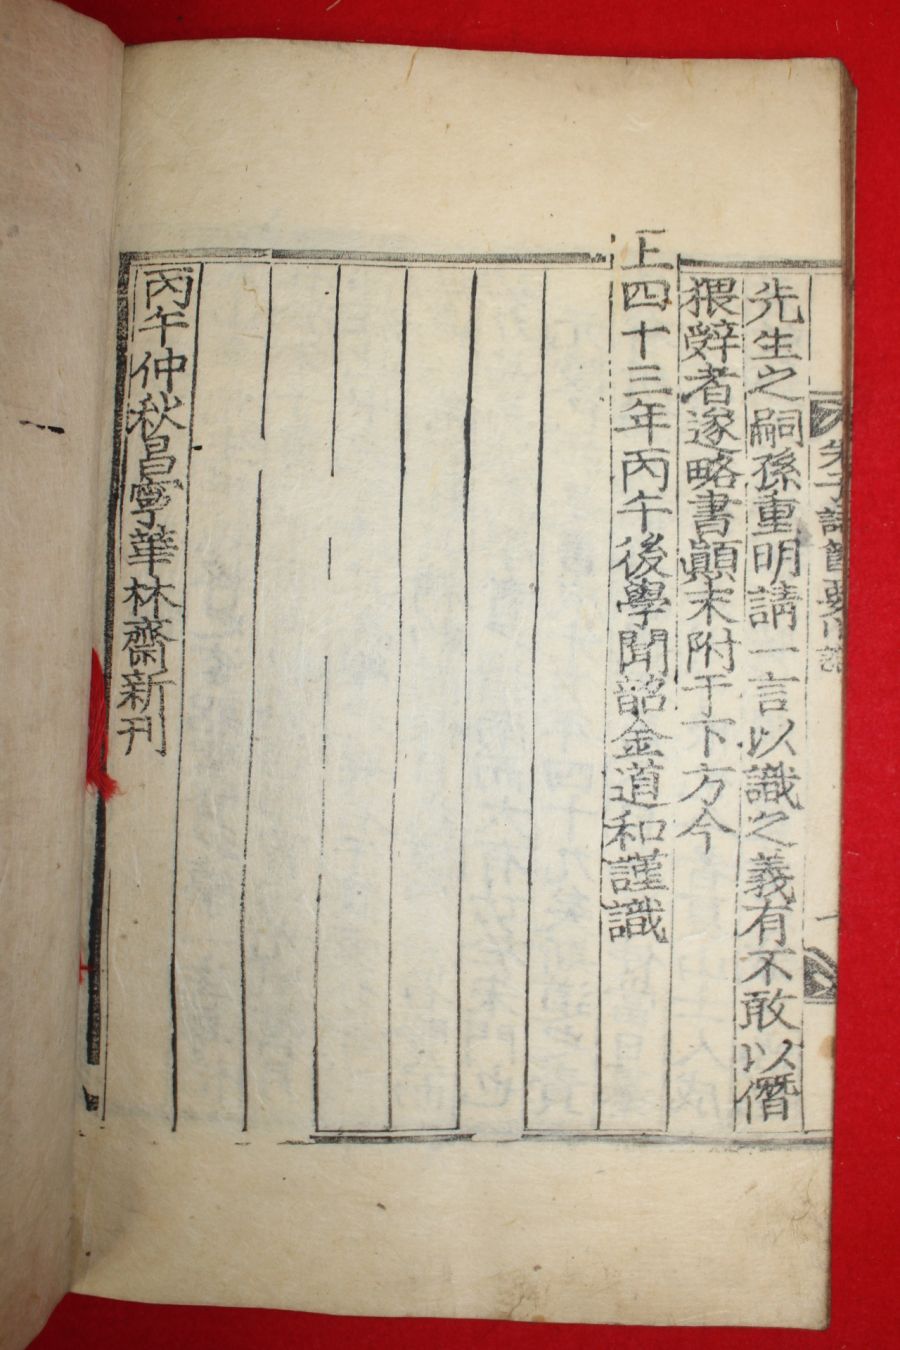 先生之嗣孫重明請一言以識之義有不敢以僭
猥辭者遂略書顛末附于下方今
上四十三年丙午後學聞韶金道和謹識
丙午仲秋昌寧華林齋新刊